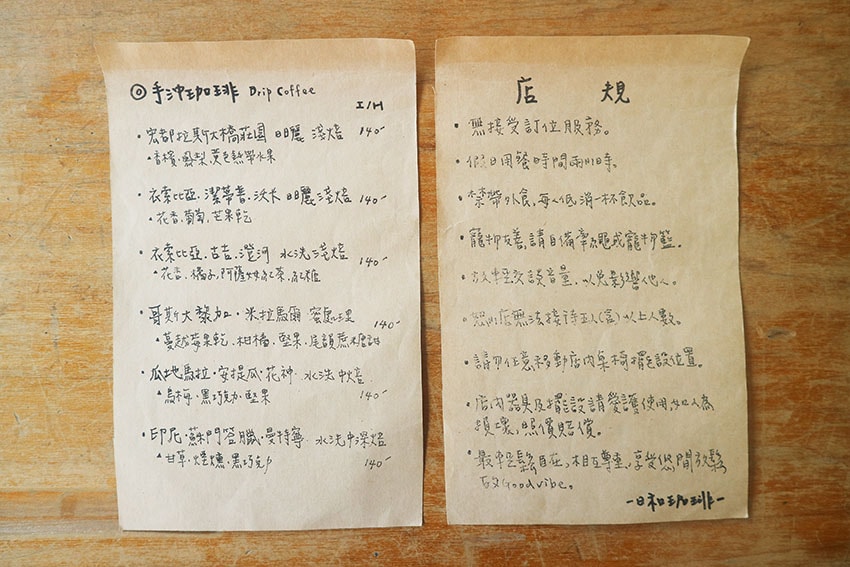 ◎手沖珈琲 Drip Coffee
I/H
・宏都拉斯大橋莊園 日曬 淺焙 140-
▲香檳、鳳梨、黃色熱帶水果
・衣索比亞.潔蒂普.沃卡 日曬 淺焙 140-
▲花香.葡萄.芒果乾
・衣索比亞.古吉.澄河 水洗 淺焙 140-
▲花香、橘子、阿薩姆紅茶、紅糖
・哥斯大黎加.米拉馬爾 蜜處理 140-
▲蔓越莓果乾、柑橘、堅果、尾韻蔗糖甜
・瓜地馬拉.安提瓜.花神 水洗 中焙
▲烏梅.黑巧克力.堅果 140-
・印尼.蘇門答臘.曼特寧 水洗 中深焙
▲甘草.煙燻.黑巧克力 140-
店 規
・無接受訂位服務。
・假日用餐時間兩小時。
・禁帶外食,每人低消一杯飲品。
・寵物友善,請自備牽繩或寵物籃。
・放輕交談音量,以免影響他人。
・恕小店無法接待五人(含)以上人數。
・請勿任意移動店內桌椅擺設位置。
・店內器具及擺設請愛護使用,如人為
損壞,照價賠償。
・最輕鬆自在,相互尊重,享受悠閒放鬆
Good vibe。
-日和珈琲-